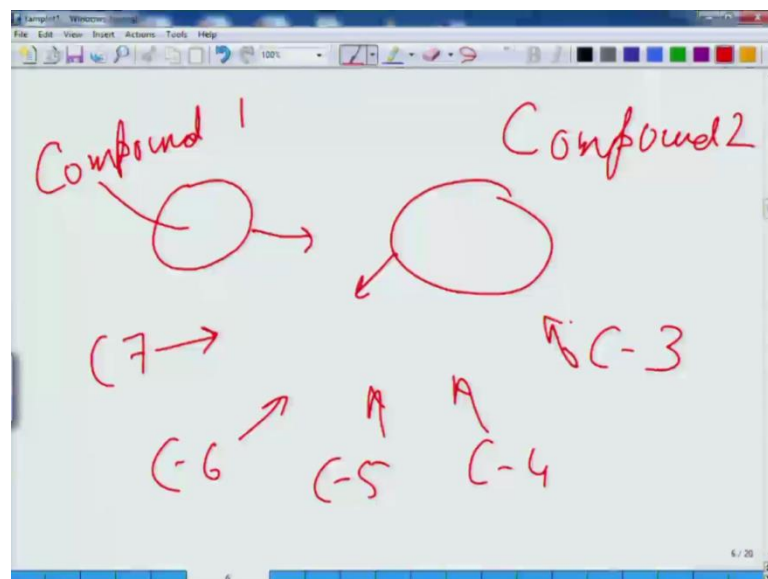 File Edit View Insert Actions Tools Help
100%
B I
Compound 1
Compound 2
C7
C-3
C-6
C-5
C-4
6 / 20